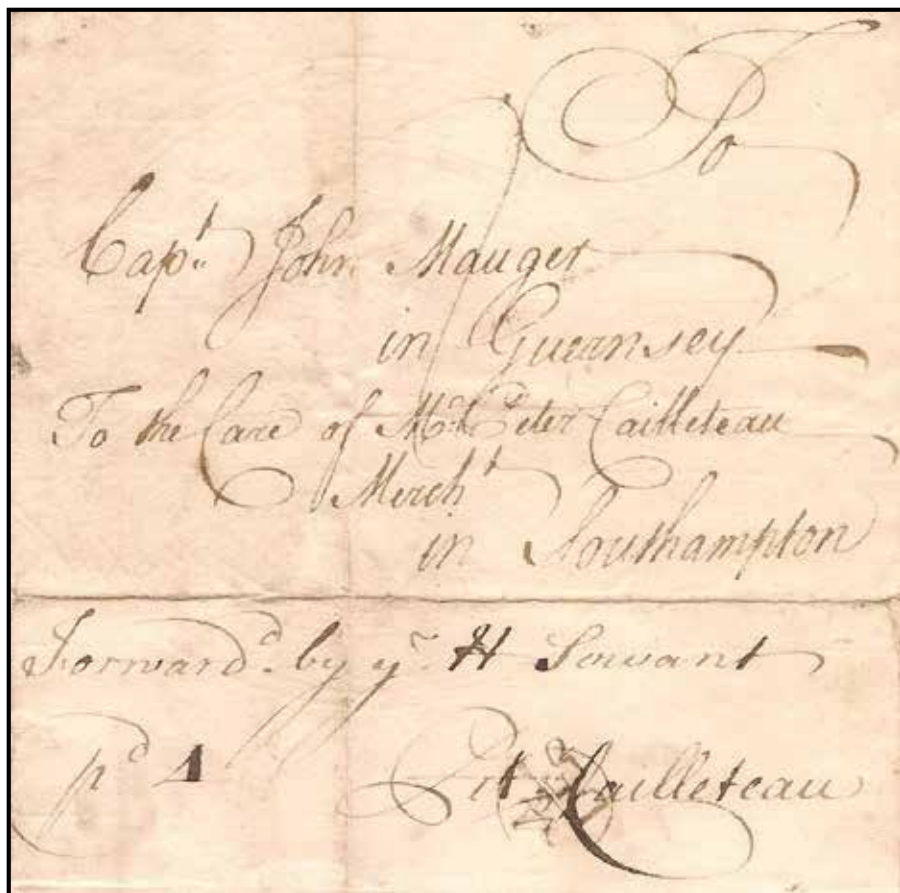 To
Capt. John Mauger
in Guernsey
To the Care of Mr. Peter Cailleteau
Mercht
in Southampton
Forward'd. by yr. H Servant
pd 4
Pet Cailleteau